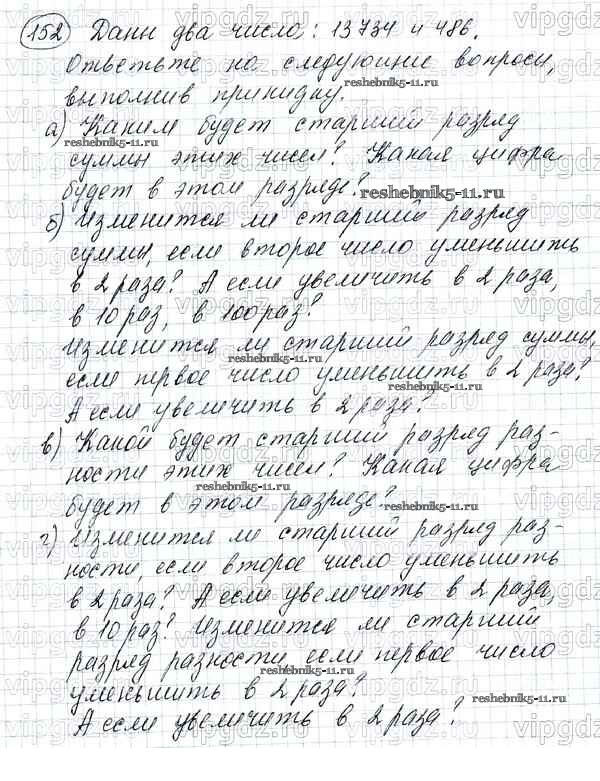 152 Даны два числа: 13734 и 486.
Ответьте на следующие вопросы,
выполнив прикидку.
а) Каким будет старший разряд
суммы этих чисел? Какая цифра
будет в этом разряде?
б) Изменится ли старший разряд
суммы, если второе число уменьшить
в 2 раза? А если увеличить в 2 раза,
в 10 раз, в 100 раз?
Изменится ли старший разряд суммы,
если первое число уменьшить в 2 раза?
А если увеличить в 2 раза?
в) Какой будет старший разряд раз-
ности этих чисел? Какая цифра
будет в этом разряде?
г) Изменится ли старший разряд раз-
ности, если второе число уменьшить
в 2 раза? А если увеличить в 2 раза,
в 10 раз? Изменится ли старший
разряд разности, если первое число
уменьшить в 2 раза?
А если увеличить в 2 раза?
reshebnik5-11.ru
vipgdz.ru